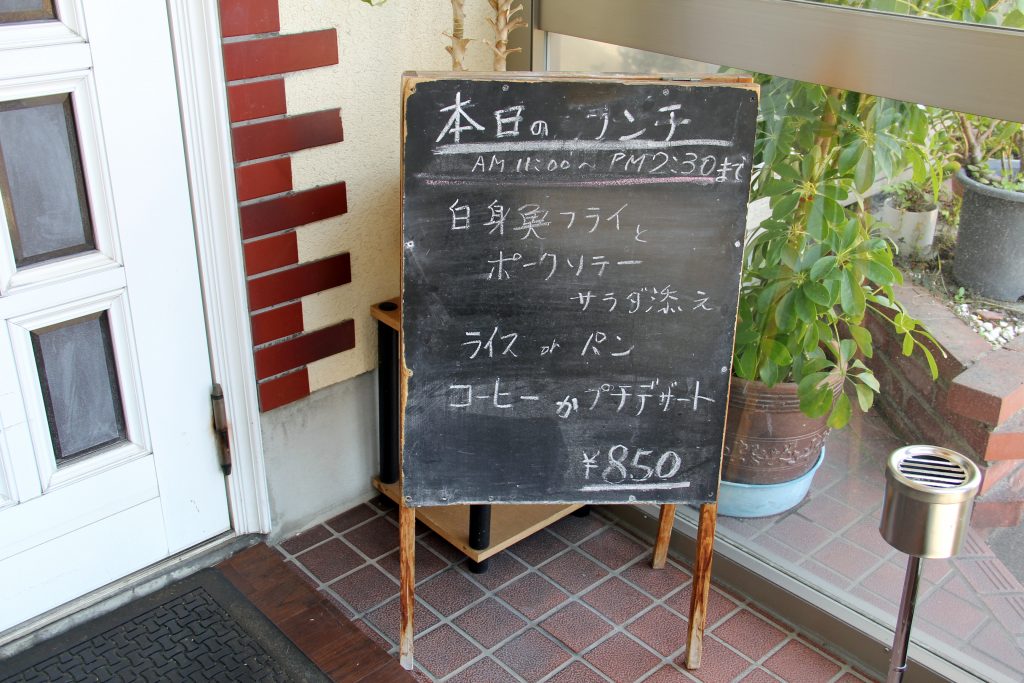 本日の ランチ
AM 11:00～PM2:30まで
白身魚フライと
ポークソテー
サラダ添え
ライス or パン
コーヒー か プチデザート
¥850